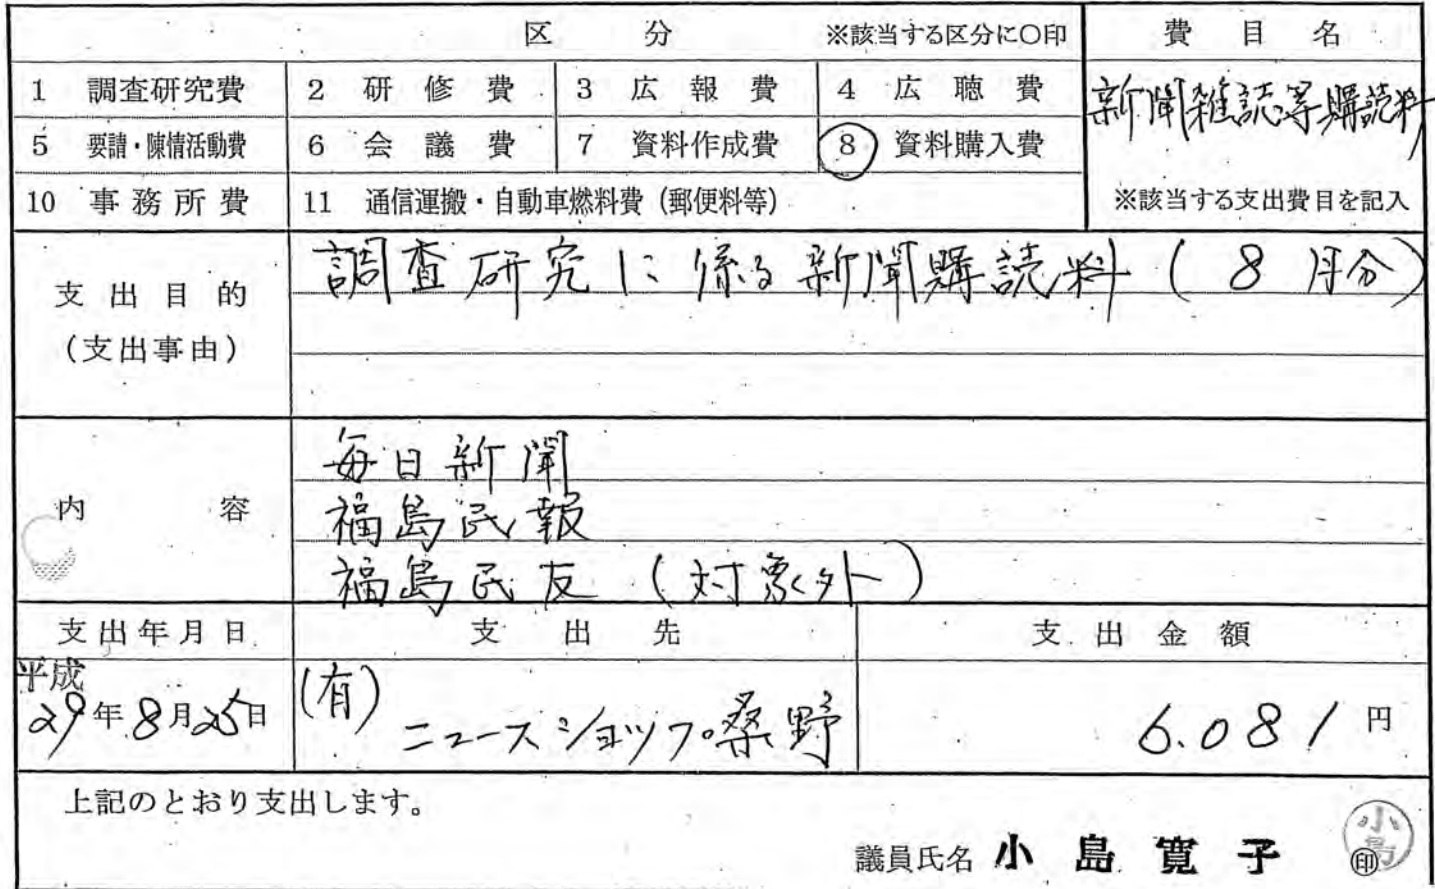 区 分 ※該当する区分に○印 費 目 名
1 調査研究費 2 研 修 費 3 広 報 費 4 広 聴 費 新聞雑誌等購読料
5 要請・陳情活動費 6 会 議 費 7 資料作成費 8 資料購入費
10 事 務 所 費 11 通信運搬・自動車燃料費 (郵便料等) ※該当する支出費目を記入
支 出 目 的 調査研究に係る新聞購読料 (8月分)
(支出事由)
毎日新聞
内 容 福島民報
福島民友 (対象外)
支出年月日 支 出 先 支 出 金 額
平成 (有)
29年8月25日 ニュースショップ桑野 6.081円
上記のとおり支出します。
議員氏名 小 島 寛 子 ㊞
小島